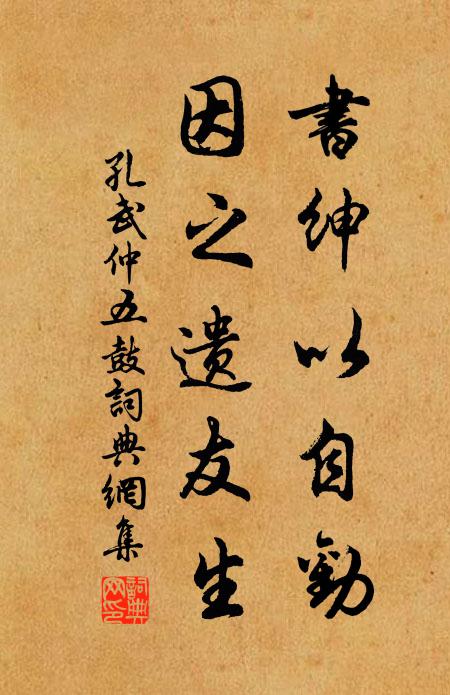 書紳以自勸
因之遺友生
孔武仲五鼓詞典網集
詞典网印